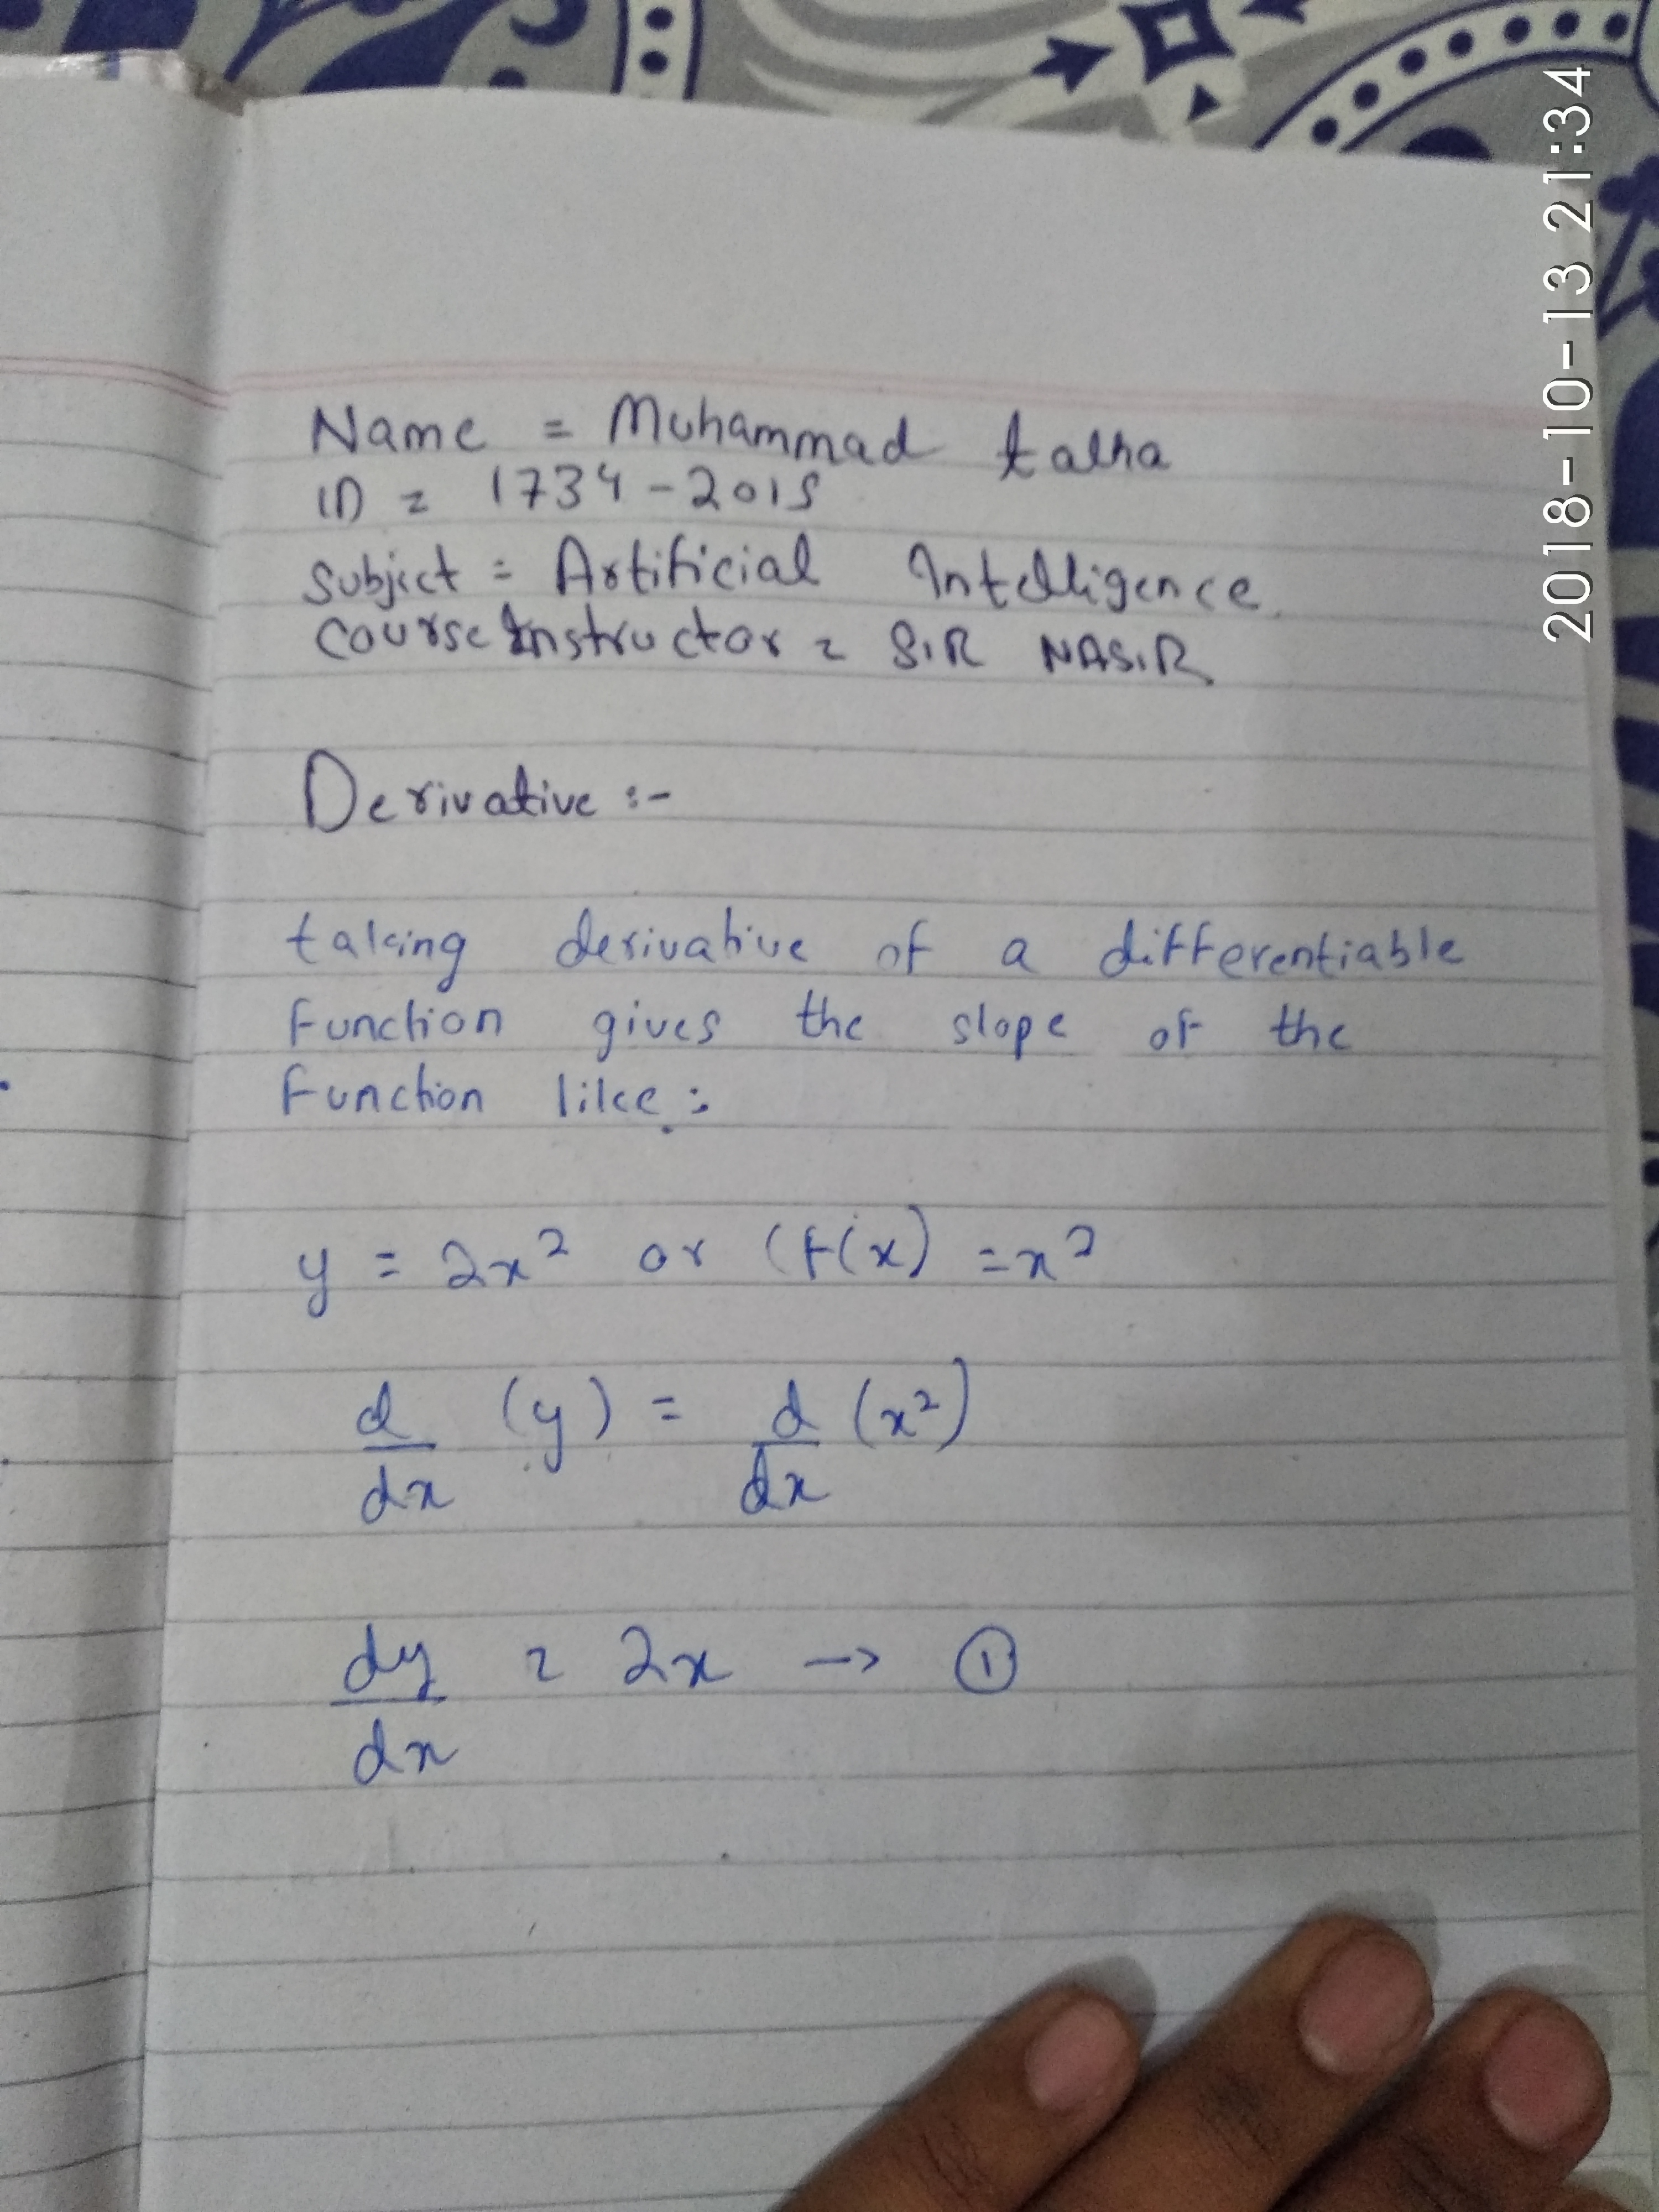 2018-10-13 21:34
Name = Muhammad talha
ID = 1734-2015
Subject = Artificial Intelligence.
Course Instructor = SIR NASIR
Derivative :-
taking derivative of a differentiable
function gives the slope of the
function like :
y = 2x² or (f(x) = x²
d/dx (y) = d/dx (x²)
dy/dx = 2x → ①